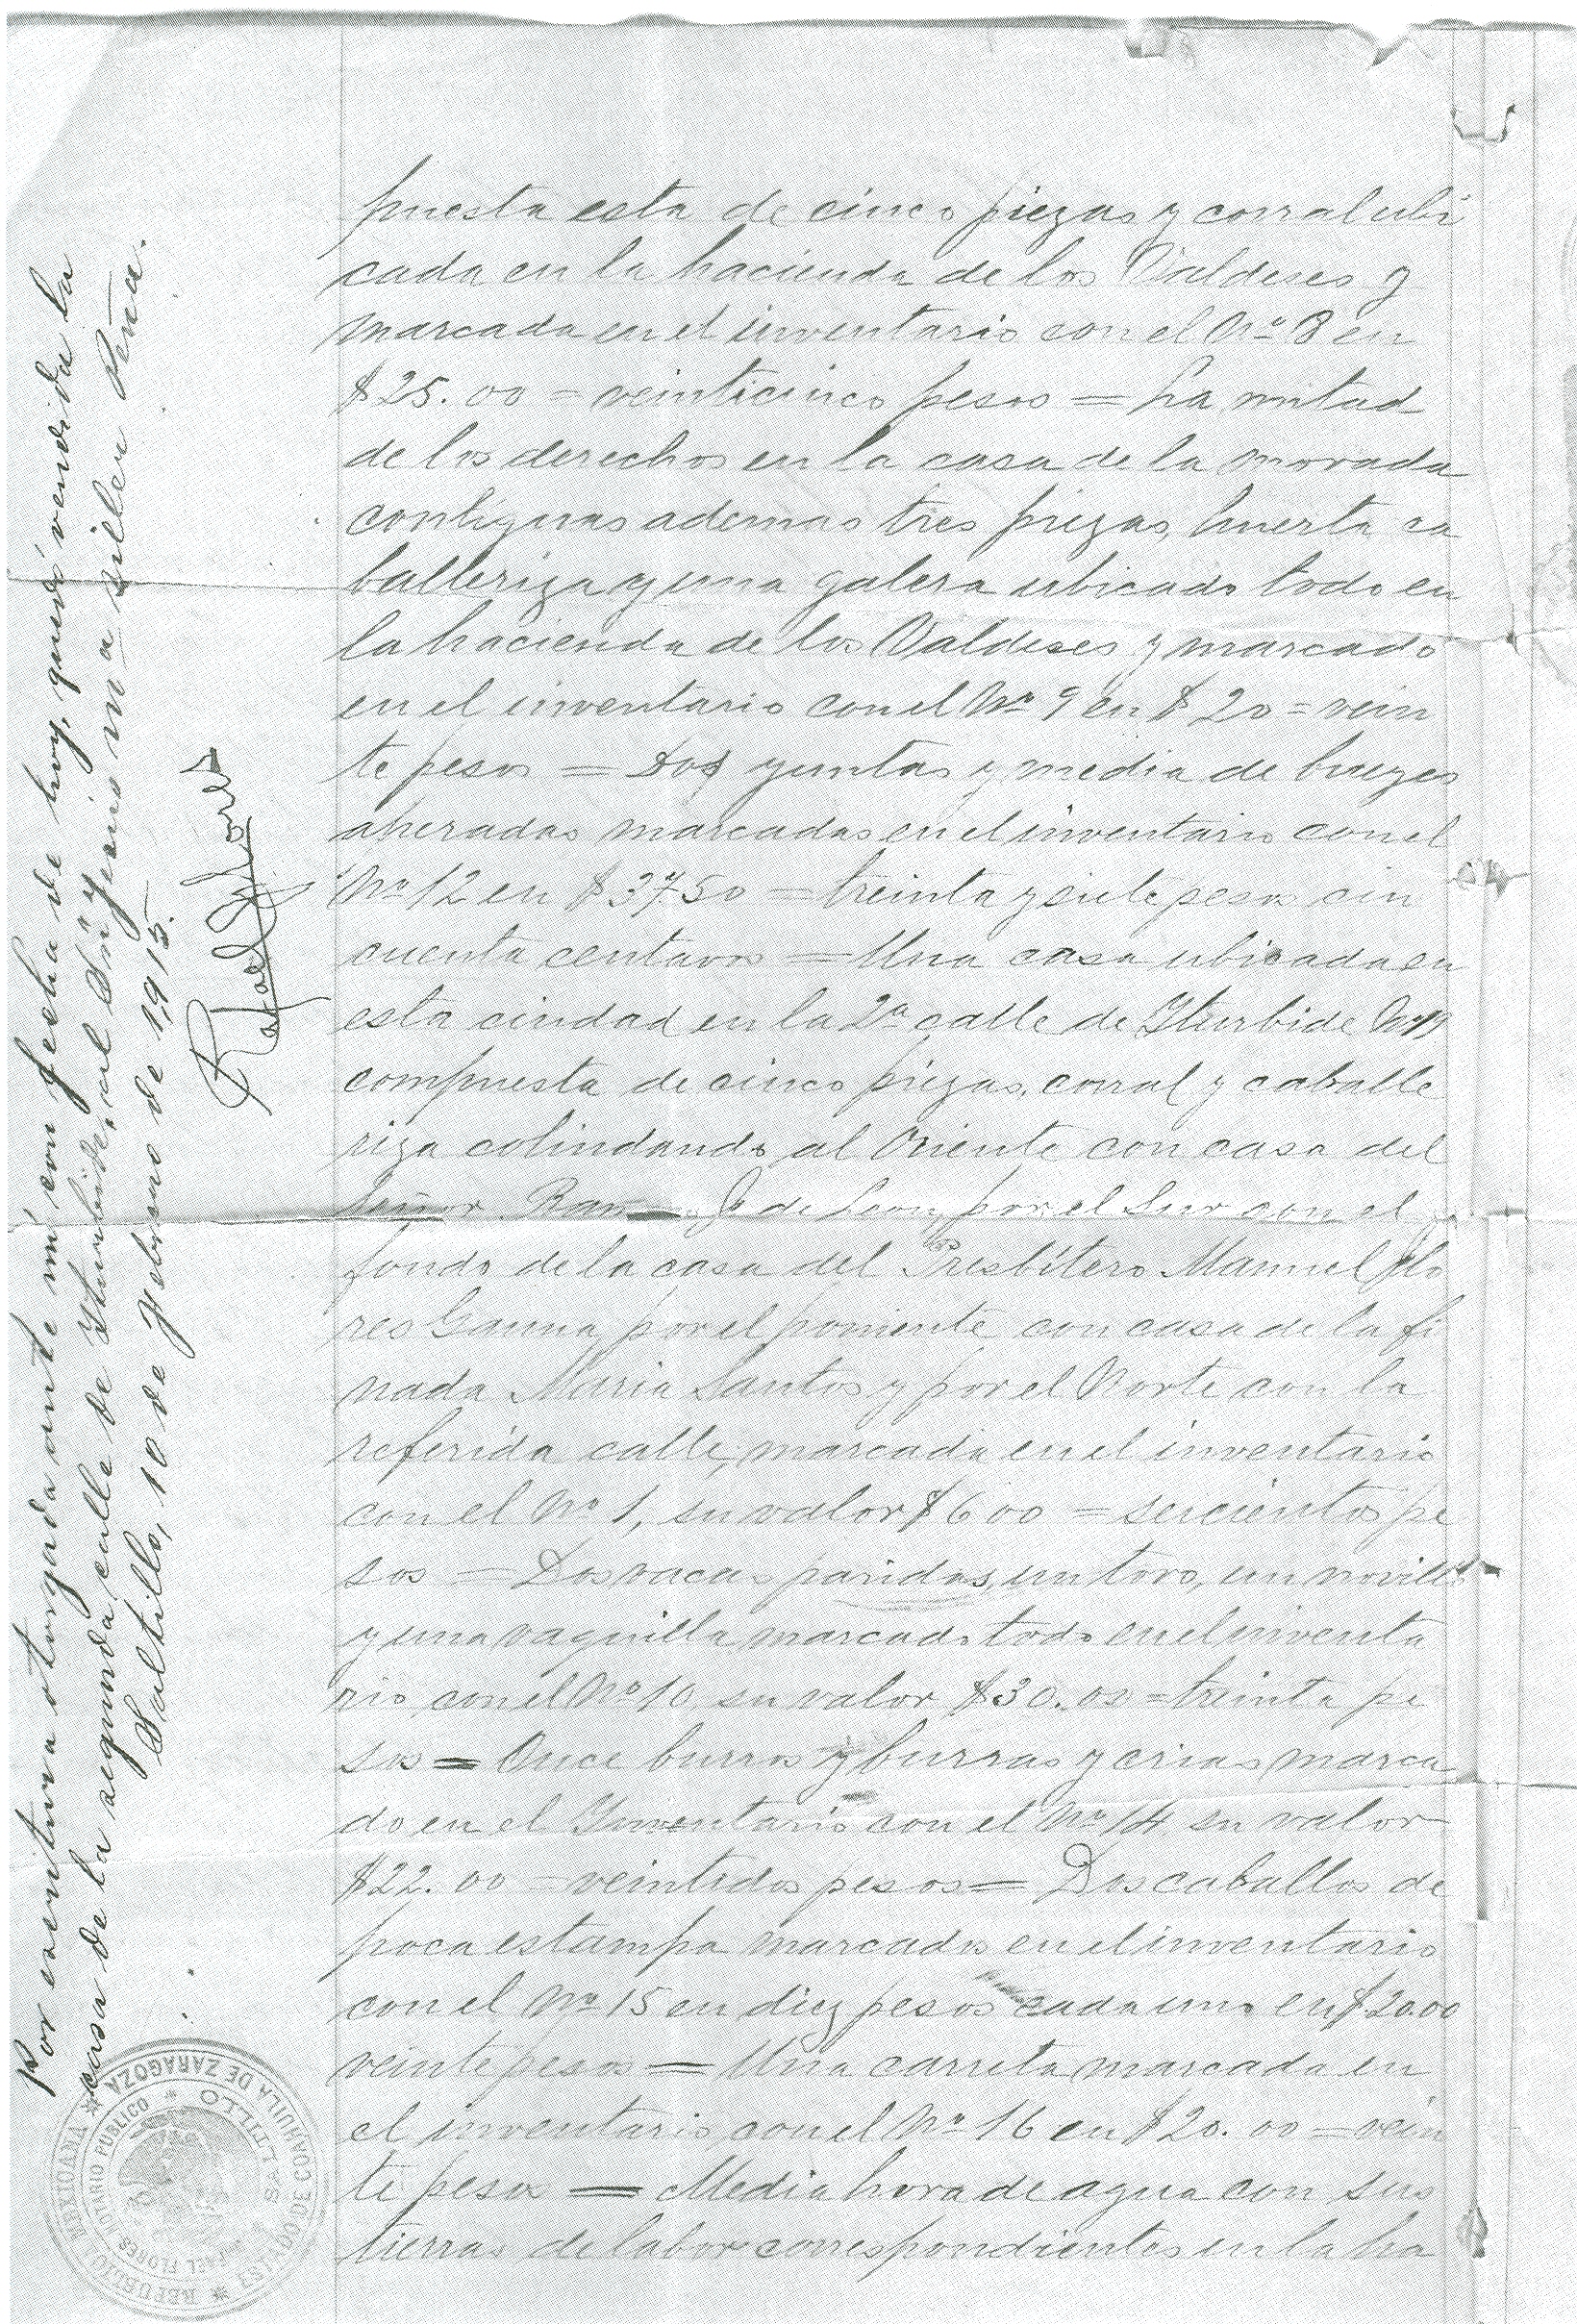 puesta esta de cinco piezas y corral ubi
cada en la hacienda de los Valdeses y
marcada en el inventario con el No 8 en
$25.00 = veinticinco pesos = La mitad
de los derechos en la casa de la morada
contiguas ademas tres piezas, huerta ca
balleriza y una galera ubicado todo en
la hacienda de los Valdeses y marcado
en el inventario con el No 9 en $20 = vein
te pesos = Dos yuntas y media de bueyes
aperadas marcadas en el inventario con el
No 12 en $37.50 = treinta y siete pesos cin
cuenta centavos = Una casa ubicada en
esta ciudad en la 2a calle de Yturbide No 19
compuesta de cinco piezas, corral y caballe
riza colindando al Oriente con casa del
Señor de Leon, por el Sur con el
fondo de la casa del Presbítero Manuel Flo
res Gauna por el poniente con casa de la fi
nada Maria Santos y por el Norte con la
referida calle, marcada en el inventario
con el No 1, su valor $600 = seicientos pe
sos = Dos vacas paridas, un toro, un novillo
y una vaquilla marcado todo en el inventa
rio con el No 10 su valor $30.00 = treinta pe
sos = Once burros y burras y crias marca
do en el Ynventario con el No 14 su valor
$22.00 = veintidos pesos = Dos caballos de
poca estampa marcados en el inventario
con el No 15 en diez pesos cada uno en $20.00
veinte pesos = Una carreta marcada en
el inventario con el No 16 en $20.00 = vein
te pesos = Media hora de agua con sus
tierras de labor correspondientes en la ha
Por escritura otorgada ante mí con fecha de hoy, quedó vendida la
casa de la segunda calle de Yturbide, al Sr. Peña.
Saltillo, 10 de Febrero de 1915.
Rafael Flores
REPUBLICA MEXICANA * ESTADO DE COAHUILA DE ZARAGOZA *
RAFAEL FLORES NOTARIO PUBLICO *
SALTILLO